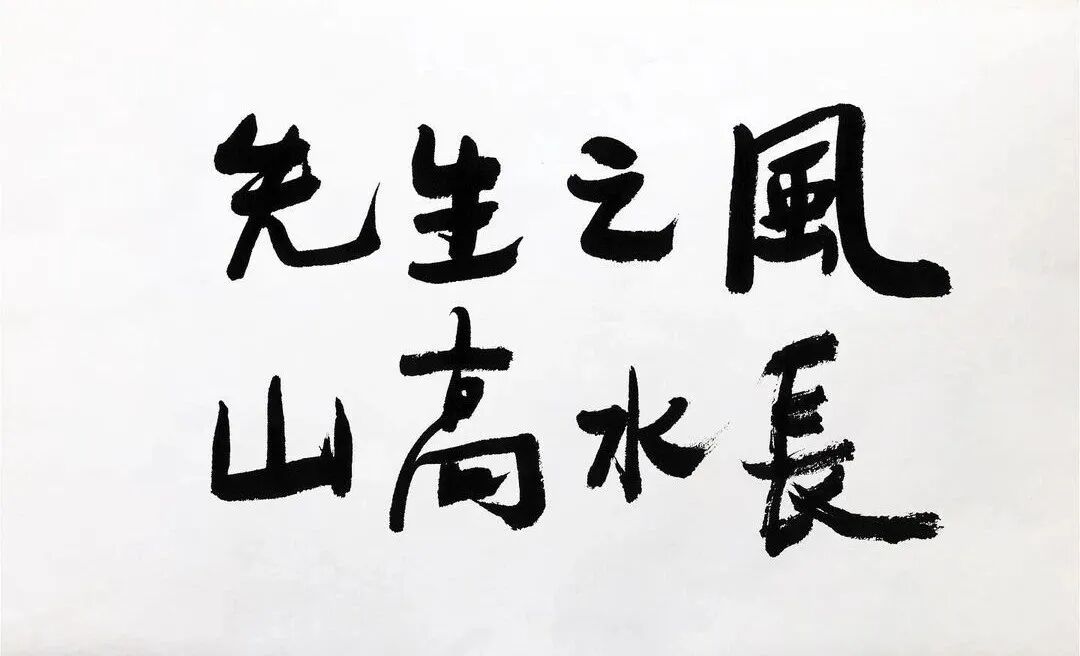 先生之風
山高水長